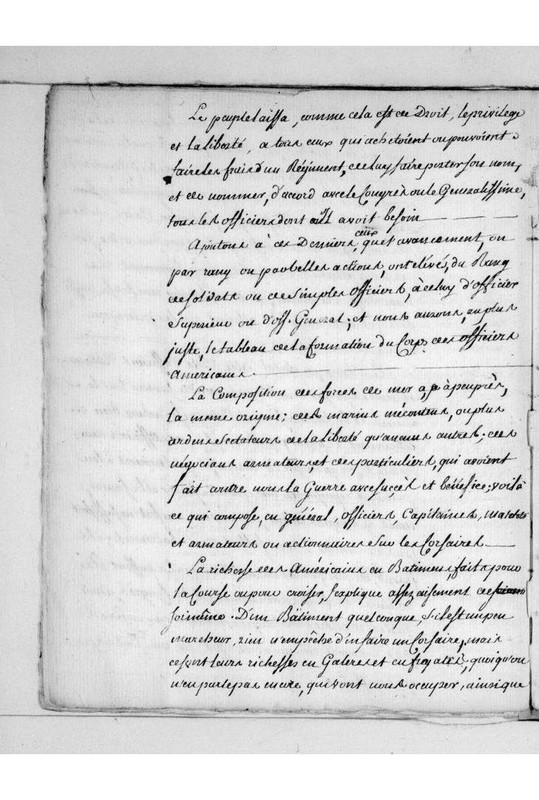 Le peuple laissa, comme cela est de Droit, le privilege
et la liberté, a tous ceux qui achetoient ou pouvoient
faire les frais d'un Régiment, de luy faire porter son nom,
et de nommer, d'acord avec le Congrès ou le Generalissime,
tous les officiers dont il avoit besoin
Ajoutons à ces Derniers, ceux que l'avancement, ou
par rang ou par belles actions, ont élevés, du Rang
de soldats ou de simples officiers, à celuy d'officier
Superieur ou d'off. General; et nous aurons, au plus
juste, le tableau de la formation du Corps des officiers
Americains.
La Composition des forces de mer a, à peu près,
la meme origine; des marins mécontens, ou plus
ardens sectateurs de la liberté qu'aucuns autres; des
négocians armateurs, et des particuliers, qui avoient
fait contre nous la Guerre avec succès et bénéfice; voilà
ce qui compose, en général, officiers, Capitaines, matelots
et armateurs ou actionnaires sur les Corsaires.
La richesse des Américains en Batimens, faits pour
la Course ou pour croiser, s'explique assez aisement
D'un Bâtiment quelconque, s'il est un peu
marcheur, rien n'empêche d'en faire un Corsaire, mais
ce sont leurs richesses en Galeres et en fregates, quoiqu'on
n'en parle pas encore, qui vont nous occuper, ainsi que